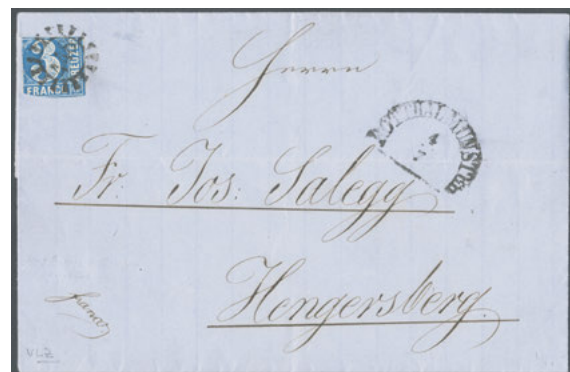 3
KREUZER
FRANCO
Herrn
ROTTHALMÜNSTER
4
7
Fr. Jos: Salegg
Hengersberg.
franco
VLZ